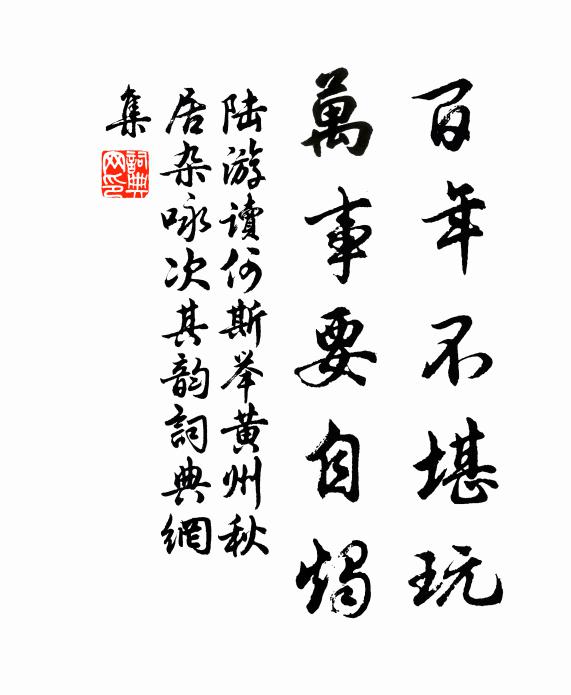 百年不堪玩
萬事要自燭
陆游讀何斯举黄州秋
居杂咏次其韵詞典網
集
詞典網印